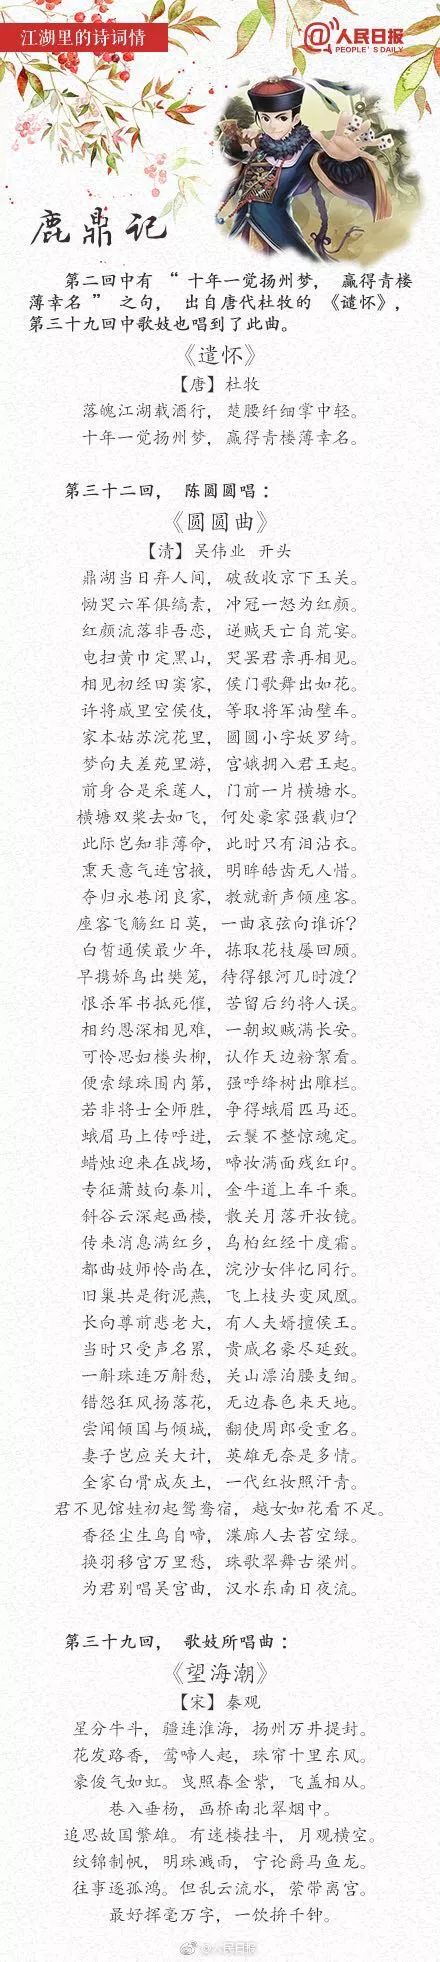 江湖里的诗词情
@人民日报
PEOPLE'S DAILY
鹿鼎记
第二回中有 “ 十年一觉扬州梦， 赢得青楼
薄幸名 ” 之句， 出自唐代杜牧的 《谴怀》，
第三十九回中歌妓也唱到了此曲。
《遣怀》
【唐】杜牧
落魄江湖载酒行，楚腰纤细掌中轻。
十年一觉扬州梦，赢得青楼薄幸名。
第三十二回， 陈圆圆唱：
《圆圆曲》
【清】吴伟业 开头
鼎湖当日弃人间，破敌收京下玉关。
恸哭六军俱缟素，冲冠一怒为红颜。
红颜流落非吾恋，逆贼天亡自荒宴。
电扫黄巾定黑山，哭罢君亲再相见。
相见初经田窦家，侯门歌舞出如花。
许将戚里空侯伎，等取将军油壁车。
家本姑苏浣花里，圆圆小字妖罗绮。
梦向夫差苑里游，宫娥拥入君王起。
前身合是采莲人，门前一片横塘水。
横塘双桨去如飞，何处豪家强载归？
此际岂知非薄命，此时只有泪沾衣。
熏天意气连宫掖，明眸皓齿无人惜。
夺归永巷闭良家，教就新声倾座客。
座客飞觞红日莫，一曲哀弦向谁诉？
白皙通侯最少年，拣取花枝屡回顾。
早携娇鸟出樊笼，待得银河几时渡？
恨杀军书抵死催，苦留后约将人误。
相约恩深相见难，一朝蚁贼满长安。
可怜思妇楼头柳，认作天边粉絮看。
便索绿珠围内第，强呼绛树出雕栏。
若非将士全师胜，争得蛾眉匹马还。
蛾眉马上传呼进，云鬟不整惊魂定。
蜡烛迎来在战场，啼妆满面残红印。
专征萧鼓向秦川，金牛道上车千乘。
斜谷云深起画楼，散关月落开妆镜。
传来消息满红乡，乌桕红经十度霜。
都曲妓师怜尚在，浣沙女伴忆同行。
旧巢共是衔泥燕，飞上枝头变凤凰。
长向尊前悲老大，有人夫婿擅侯王。
当时只受声名累，贵戚名豪尽延致。
一斛珠连万斛愁，关山漂泊腰支细。
错怨狂风扬落花，无边春色来天地。
尝闻倾国与倾城，翻使周郎受重名。
妻子岂应关大计，英雄无奈是多情。
全家白骨成灰土，一代红妆照汗青。
君不见馆娃初起鸳鸯宿，越女如花看不足。
香径尘生鸟自啼，渫廊人去苔空绿。
换羽移宫万里愁，珠歌翠舞古梁州。
为君别唱吴宫曲，汉水东南日夜流。
第三十九回， 歌妓所唱曲：
《望海潮》
【宋】秦观
星分牛斗，疆连淮海，扬州万井提封。
花发路香，莺啼人起，珠帘十里东风。
豪俊气如虹。曳照春金紫，飞盖相从。
巷入垂杨，画桥南北翠烟中。
追思故国繁雄。有迷楼挂斗，月观横空。
纹锦制帆，明珠溅雨，宁论爵马鱼龙。
往事逐孤鸿。但乱云流水，萦带离宫。
最好挥毫万字，一饮拚千钟。
@人民日报